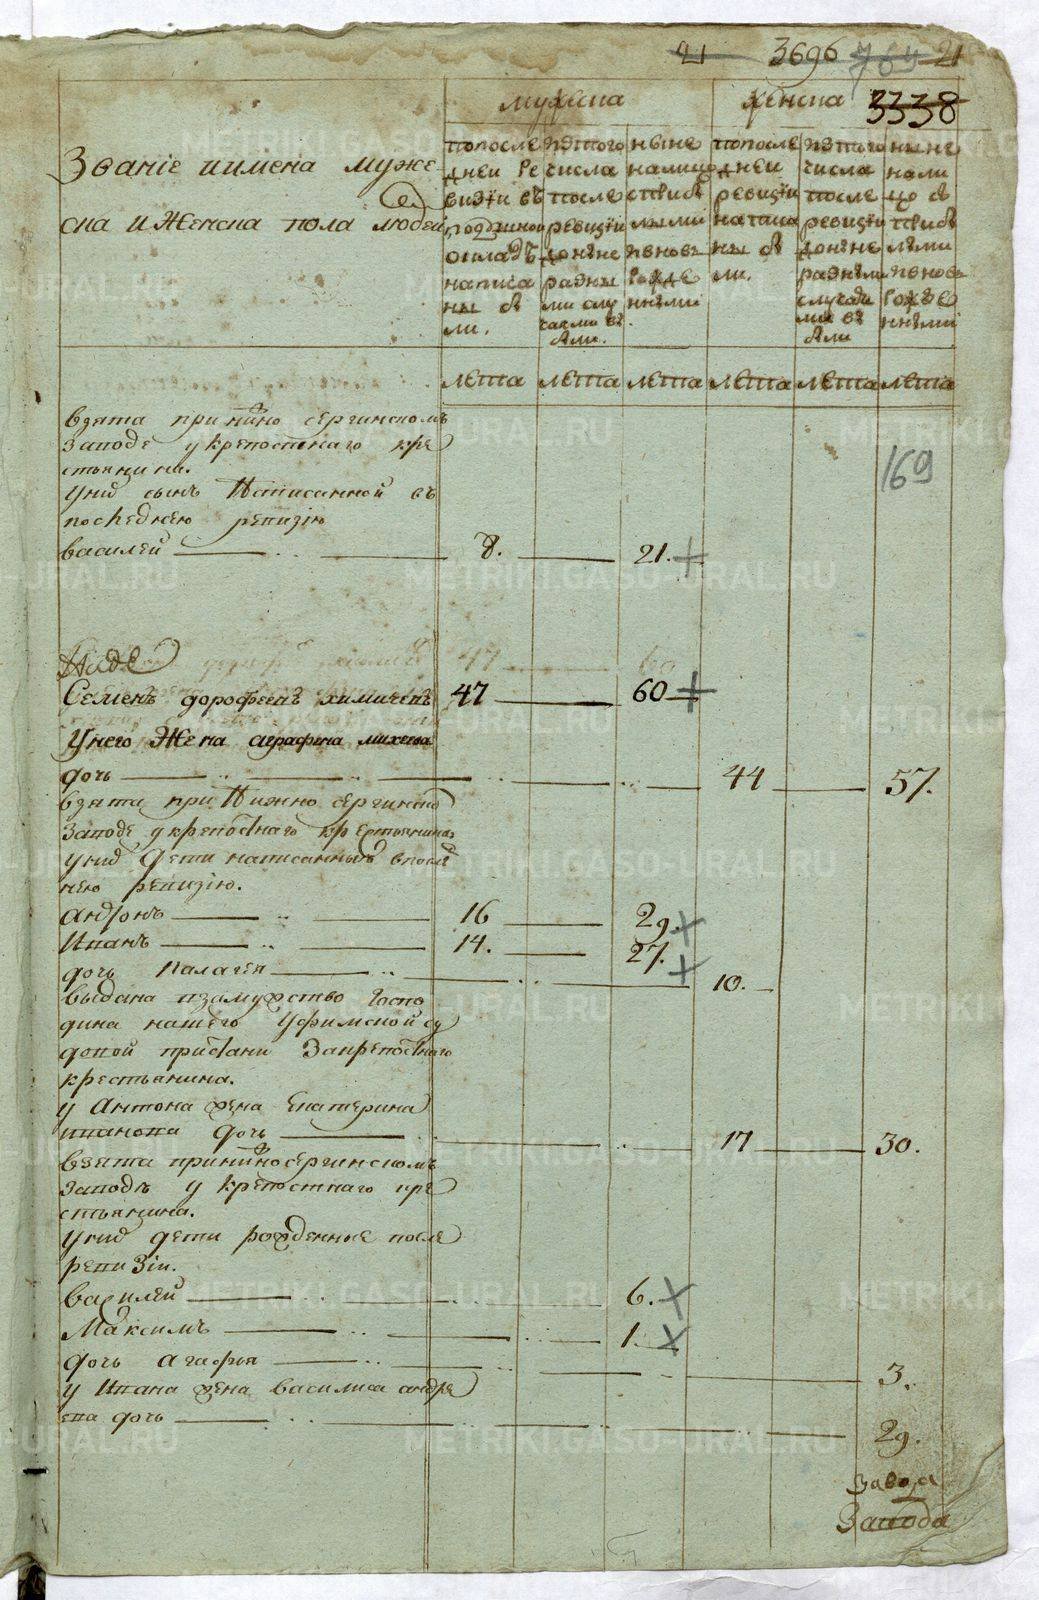 21 3696 769 21
мужеска женска 3338
Званіе иимена муже
ска иженска пола людей
попосле дней ревизіи въ подушной окладъ написаны были.
изтого числа после ревизіи доныне разными случаями выбыли.
ныне налицо сприбылыми ивновь рожденными
попоследней ревизіи написаны были.
изтого числа после ревизіи доныне разными случаями выбыли
ныне налицо сприбылыми ивновь рожденными
лета лета лета лета лета лета
взята принижно сергинскомъ
заводе укрепостнаго кре
стьянина.
169
унихъ сынъ написанной въ
последнею ревизію
василей 8. 21.
47 60
Семенъ дорофеевъ химичевъ 47 60
Унего жена аграфина михеева
дочь 44 57.
взята при нижно сергинскомъ
заводе укрепостнаго крестьянина
унихъ дети написанныя впослед
нею ревизію.
андронъ 16 29.
Иванъ 14. 27.
дочь палагея 10.
выдана взамужство госпо
дина нашего Уфимской су
довой пристани закрепостнаго
крестьянина.
у Антона жена Екатерина
иванова дочь 17 30.
взята принижносергинскомъ
заводе у крепостнаго кре
стьянина.
унихъ дети рожденные после
ревизіи.
василей 6.
Максимъ 1.
дочь агафья 3.
у Ивана жена василиса андре
ева дочь 29.
завода
Завода